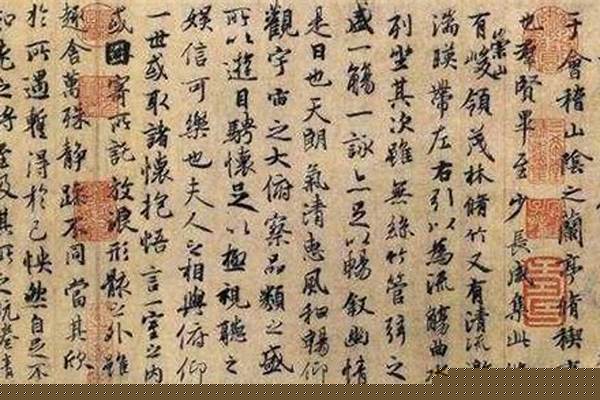 于會稽山陰之蘭亭脩稧
也羣賢畢至少長咸集此
有崇山峻領茂林脩竹又有清流
湍暎帶左右引以為流觴曲水
列坐其次雖無絲竹管弦之
盛一觴一詠亦足以暢敘幽情
是日也天朗氣清惠風和暢仰
觀宇宙之大俯察品類之盛
所以遊目騁懷足以極視聽之
娛信可樂也夫人之相與俯仰
一世或取諸懷抱悟言一室之內
或因寄所託放浪形骸之外雖
趣舍萬殊静躁不同當其欣
於所遇蹔得於己怏然自足不
老之將至及其所之既惓情